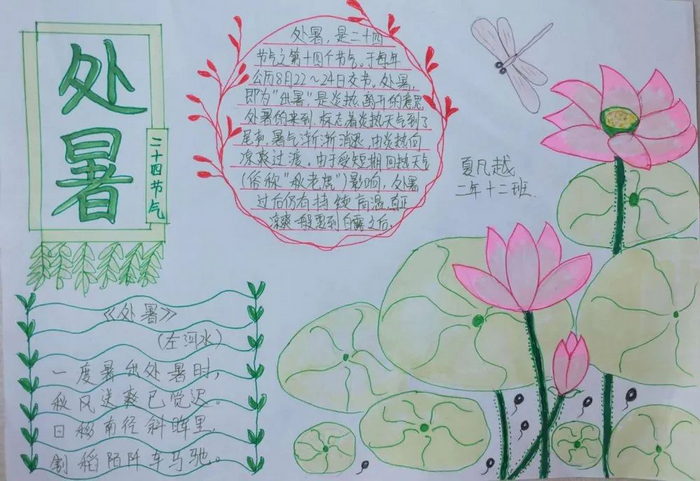 处暑
二十四节气
处暑，是二十四
节气之第十四个节气，于每年
公历8月22～24日交节。处暑，
即为“出暑”，是炎热离开的意思
处暑的来到，标志着炎热天气到了
尾声，暑气渐渐消退，由炎热向
凉爽过渡。由于秋短期回热天气
(俗称“秋老虎”)影响，处暑
过后仍有持续高温，真正
凉爽一般要到白露之后。
夏凡越
二年十二班
《处暑》
(左河水)
一度暑出处暑时，
秋风送爽已觉迟。
日移南径斜晖里，
割稻陌阡车马驰。